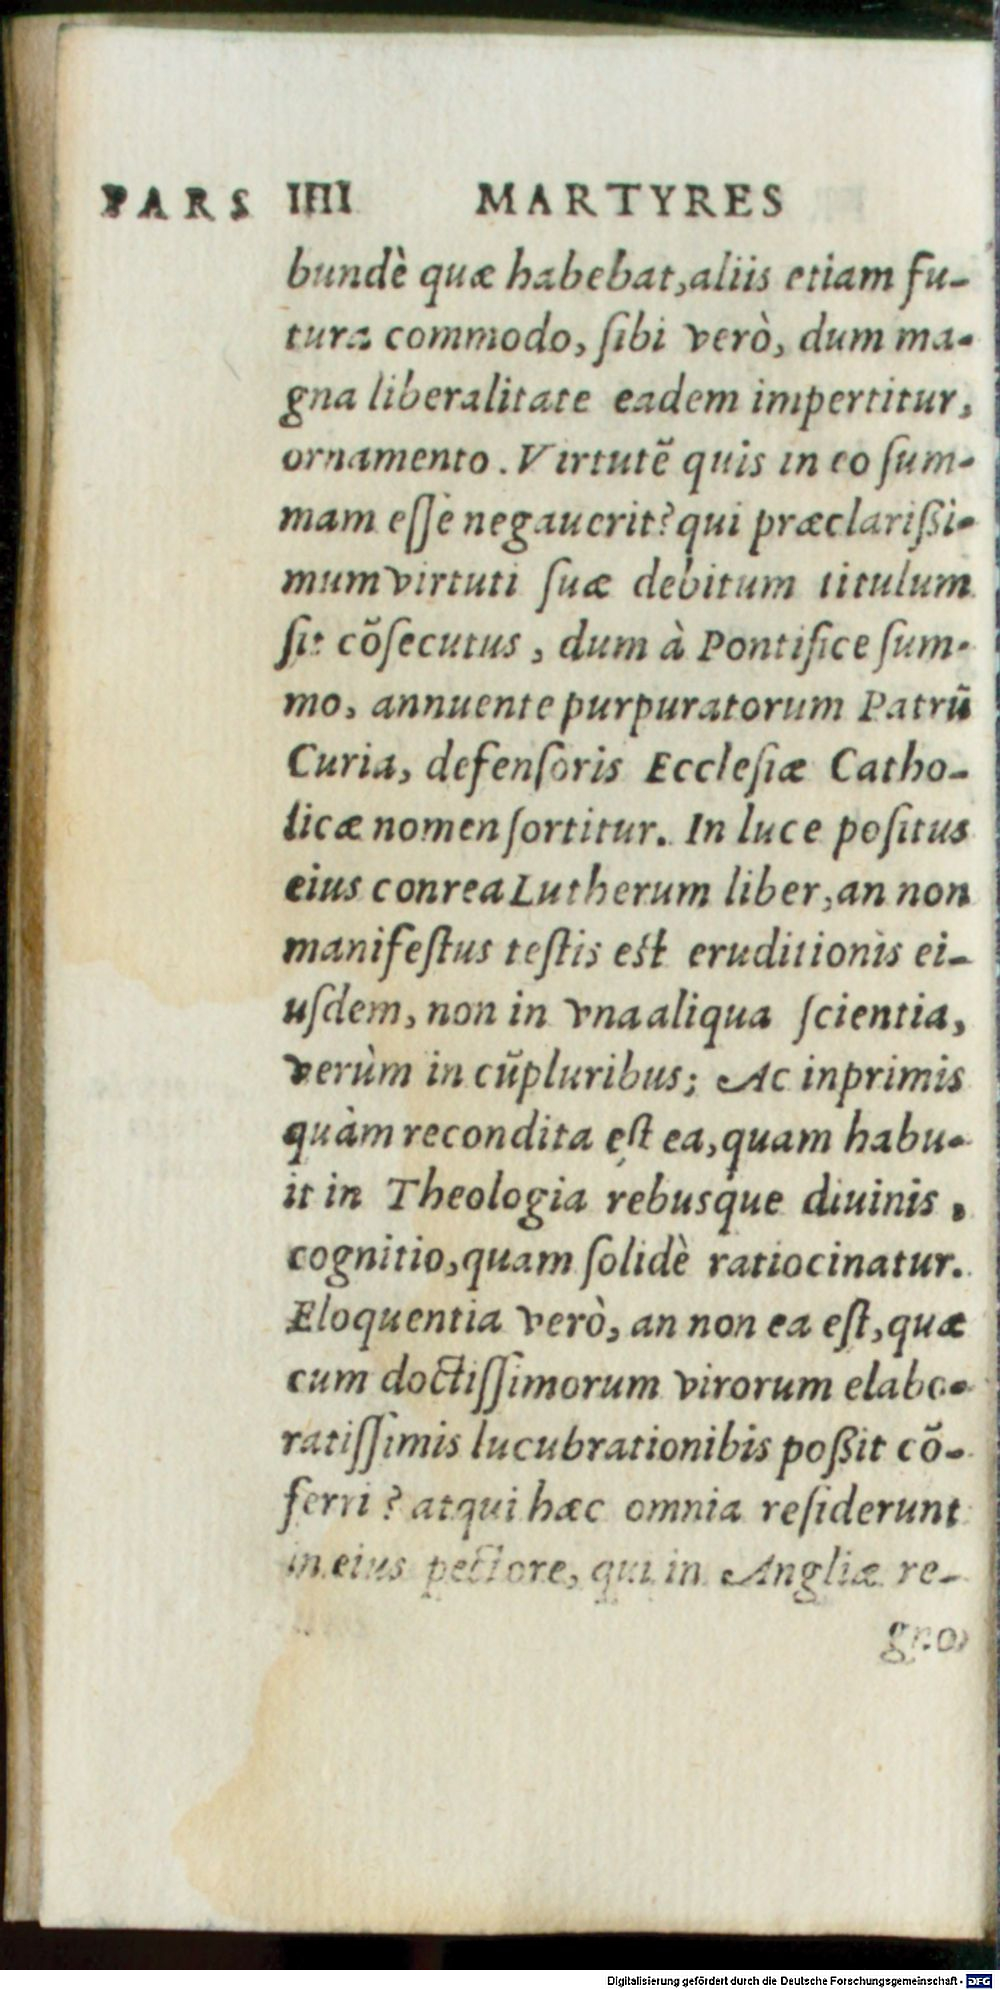 PARS IIII MARTYRES
bundè quæ habebat, aliis etiam fu-
tura commodo, ſibi verò, dum ma-
gna liberalitate eadem impertitur,
ornamento. Virtutẽ quis in eo ſum-
mam eſſe negauerit? qui præclariſſi-
mum virtuti ſuæ debitum titulum
ſit cõſecutus, dum à Pontifice ſum-
mo, annuente purpuratorum Patrũ
Curia, defenſoris Eccleſiæ Catho-
licæ nomen ſortitur. In luce poſitus
eius conrea Lutherum liber, an non
manifeſtus teſtis eſt eruditionis ei-
uſdem, non in vna aliqua ſcientia,
verùm in cũpluribus; Ac inprimis
quàm recondita eſt ea, quam habu-
it in Theologia rebusque diuinis,
cognitio, quam ſolidè ratiocinatur.
Eloquentia verò, an non ea eſt, quæ
cum doctiſſimorum virorum elabo-
ratiſſimis lucubrationibis poſſit cõ-
ferri? atqui hæc omnia reſiderunt
in eius pectore, qui in Angliæ re-
gno
Digitalisierung gefördert durch die Deutsche Forschungsgemeinschaft - DFG